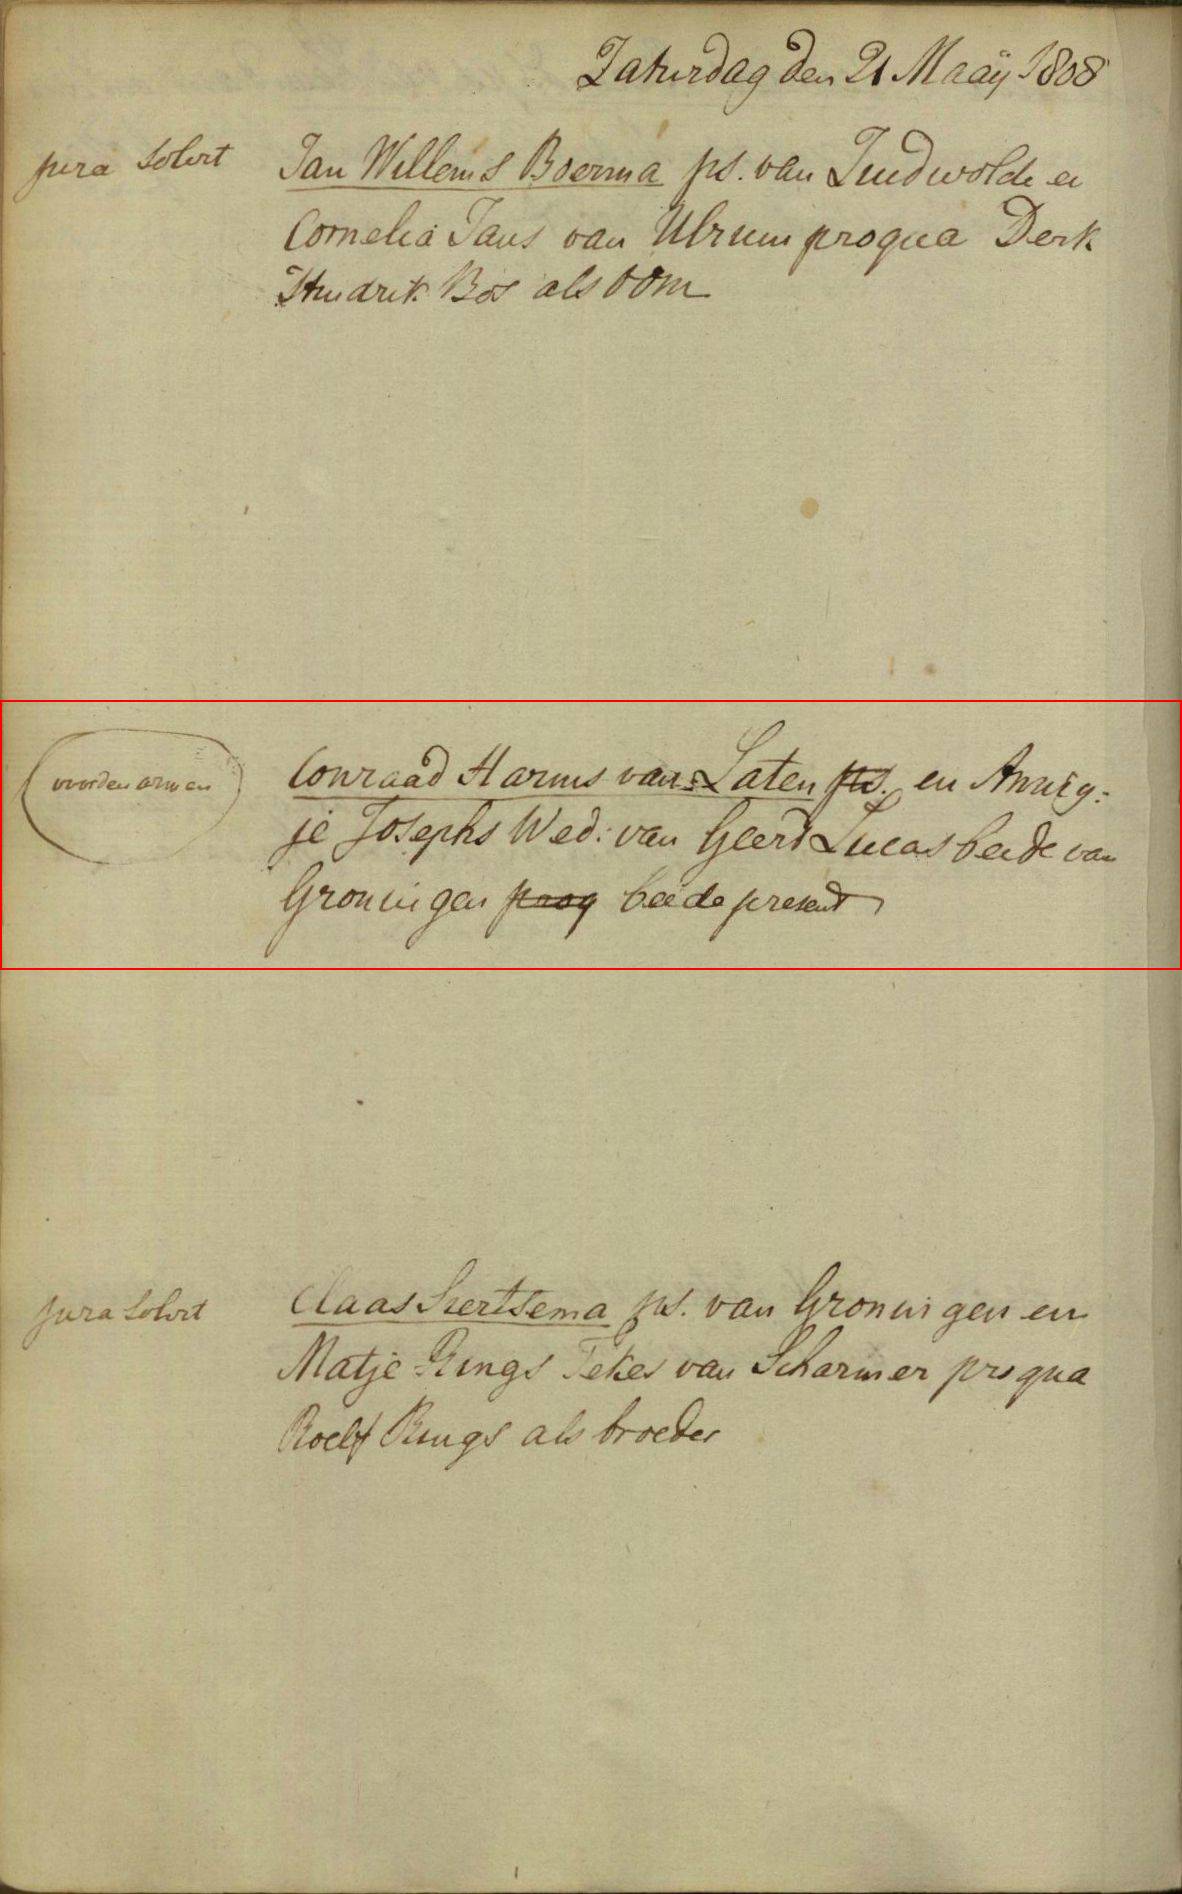 Zaturdag den 21 Maaÿ 1808
jura solvit
Jan Willems Boerma ps. van Zuidwolde en
Cornelia Jans van Ulrum proqua Derk
Hindrik Bos als oom
voor den armen
Conraad Harms van Laten ps. en Annig-
je Josephs Wed: van Geert Lucas beide van
Groningen proq beide present
jura solvit
Claas Siertsema ps. van Groningen en
Matje Rings Tekes van Scharmer pro qua
Roelf Rings als broeder